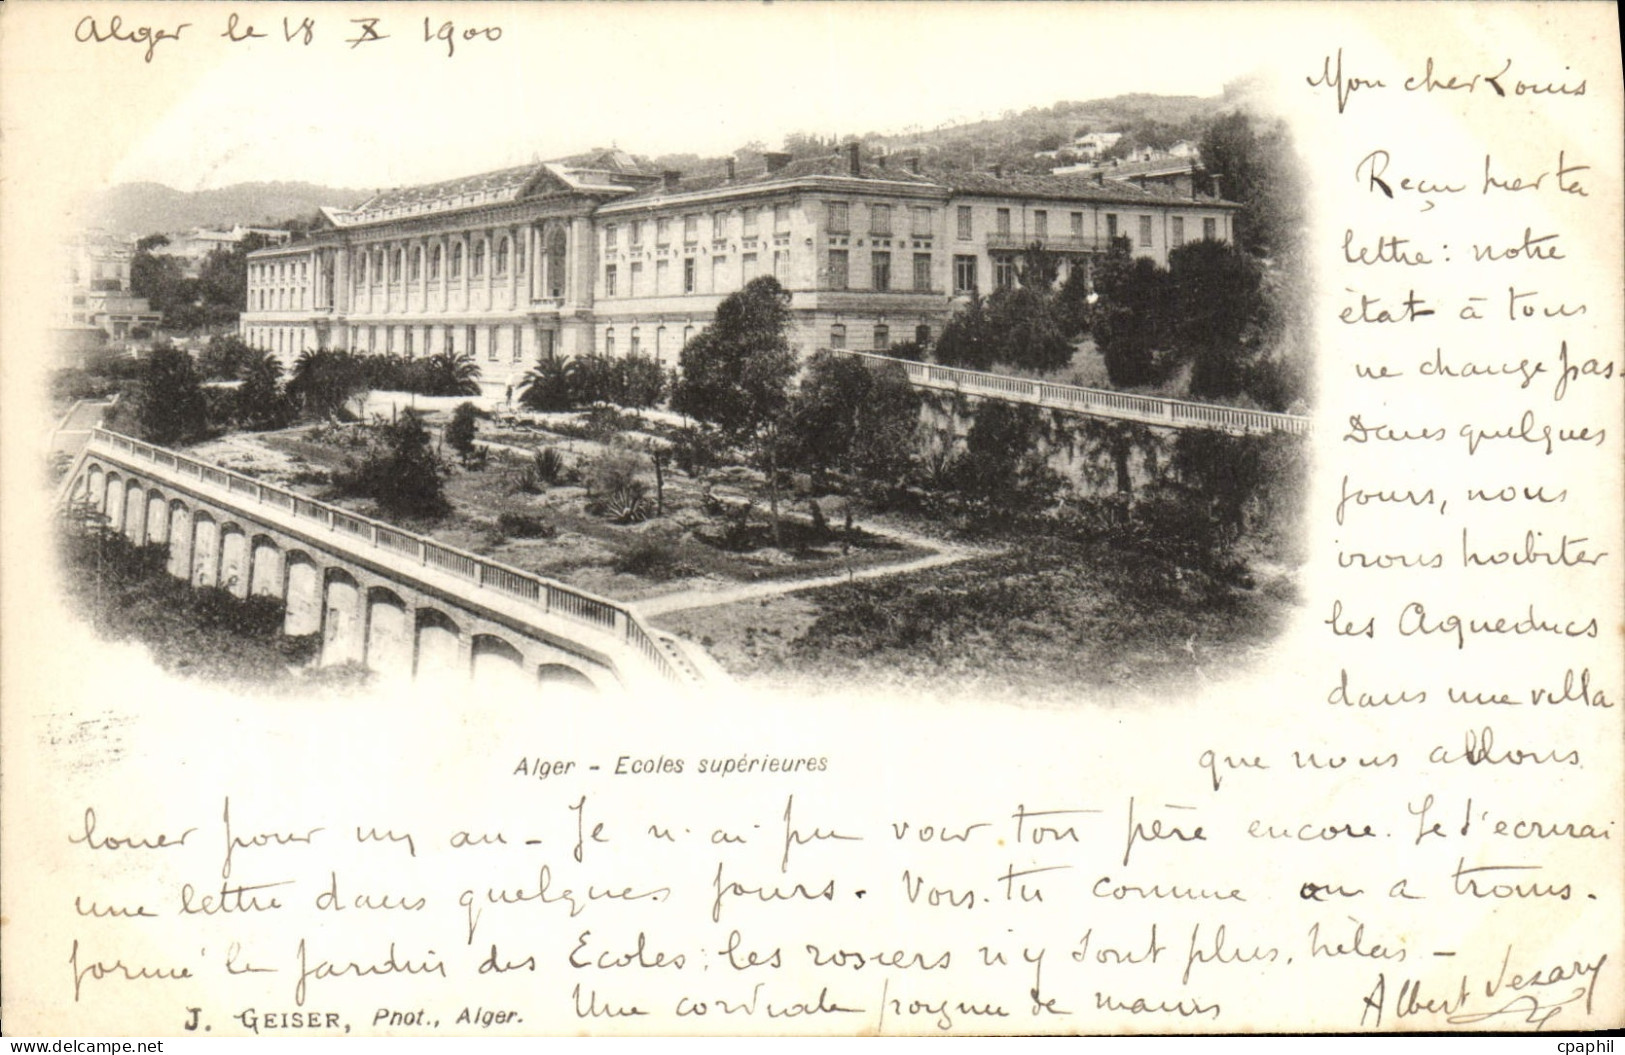 Alger le 18 X 1900
Mon cher Louis
Reçu hier ta
lettre : notre
état à tous
ne change pas.
Dans quelques
jours, nous
irons habiter
les Aqueducs
dans une villa
que nous allons
louer pour un an - Je n'ai pu voir ton père encore. Je t'écrirai
une lettre dans quelques jours. Vois-tu comme on a trans-
formé le jardin des Ecoles ; les rosiers n'y sont plus, hélas -
Une cordiale poignée de mains
Albert
Alger - Ecoles supérieures
J. GEISER, Phot., Alger.
cpaphil